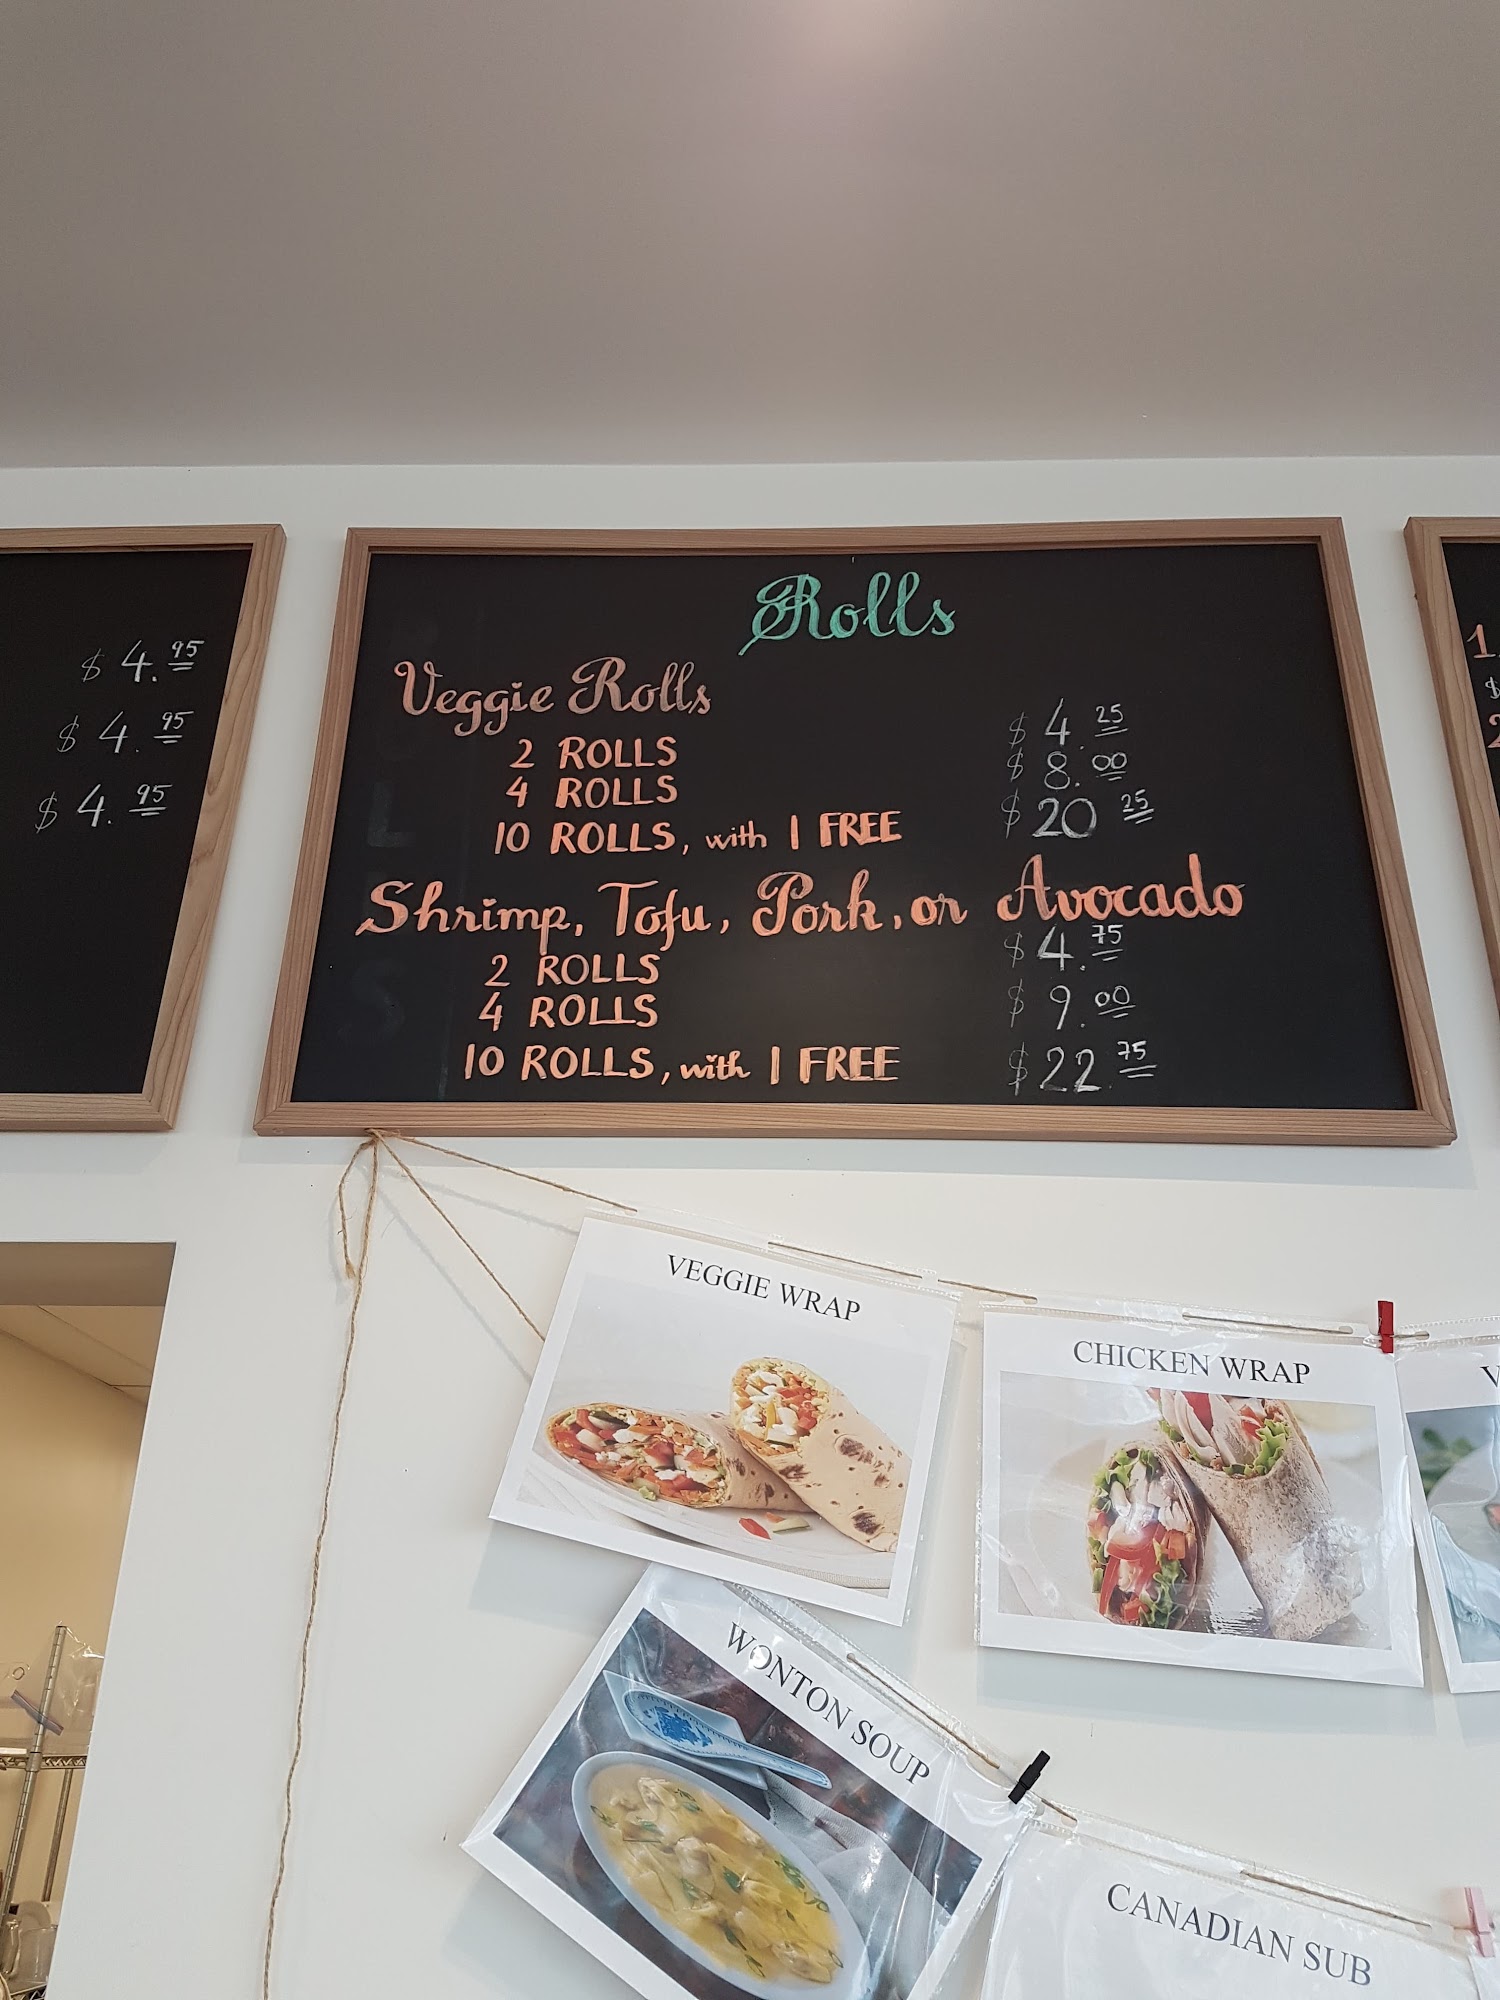 $ 4.95
$ 4.95
$ 4.95
Rolls
Veggie Rolls
2 ROLLS $ 4.25
4 ROLLS $ 8.00
10 ROLLS, with 1 FREE $ 20 25
Shrimp, Tofu, Pork, or Avocado
2 ROLLS $ 4.75
4 ROLLS $ 9.00
10 ROLLS, with 1 FREE $ 22.75
1.
$
2
VEGGIE WRAP
CHICKEN WRAP
V
WONTON SOUP
CANADIAN SUB